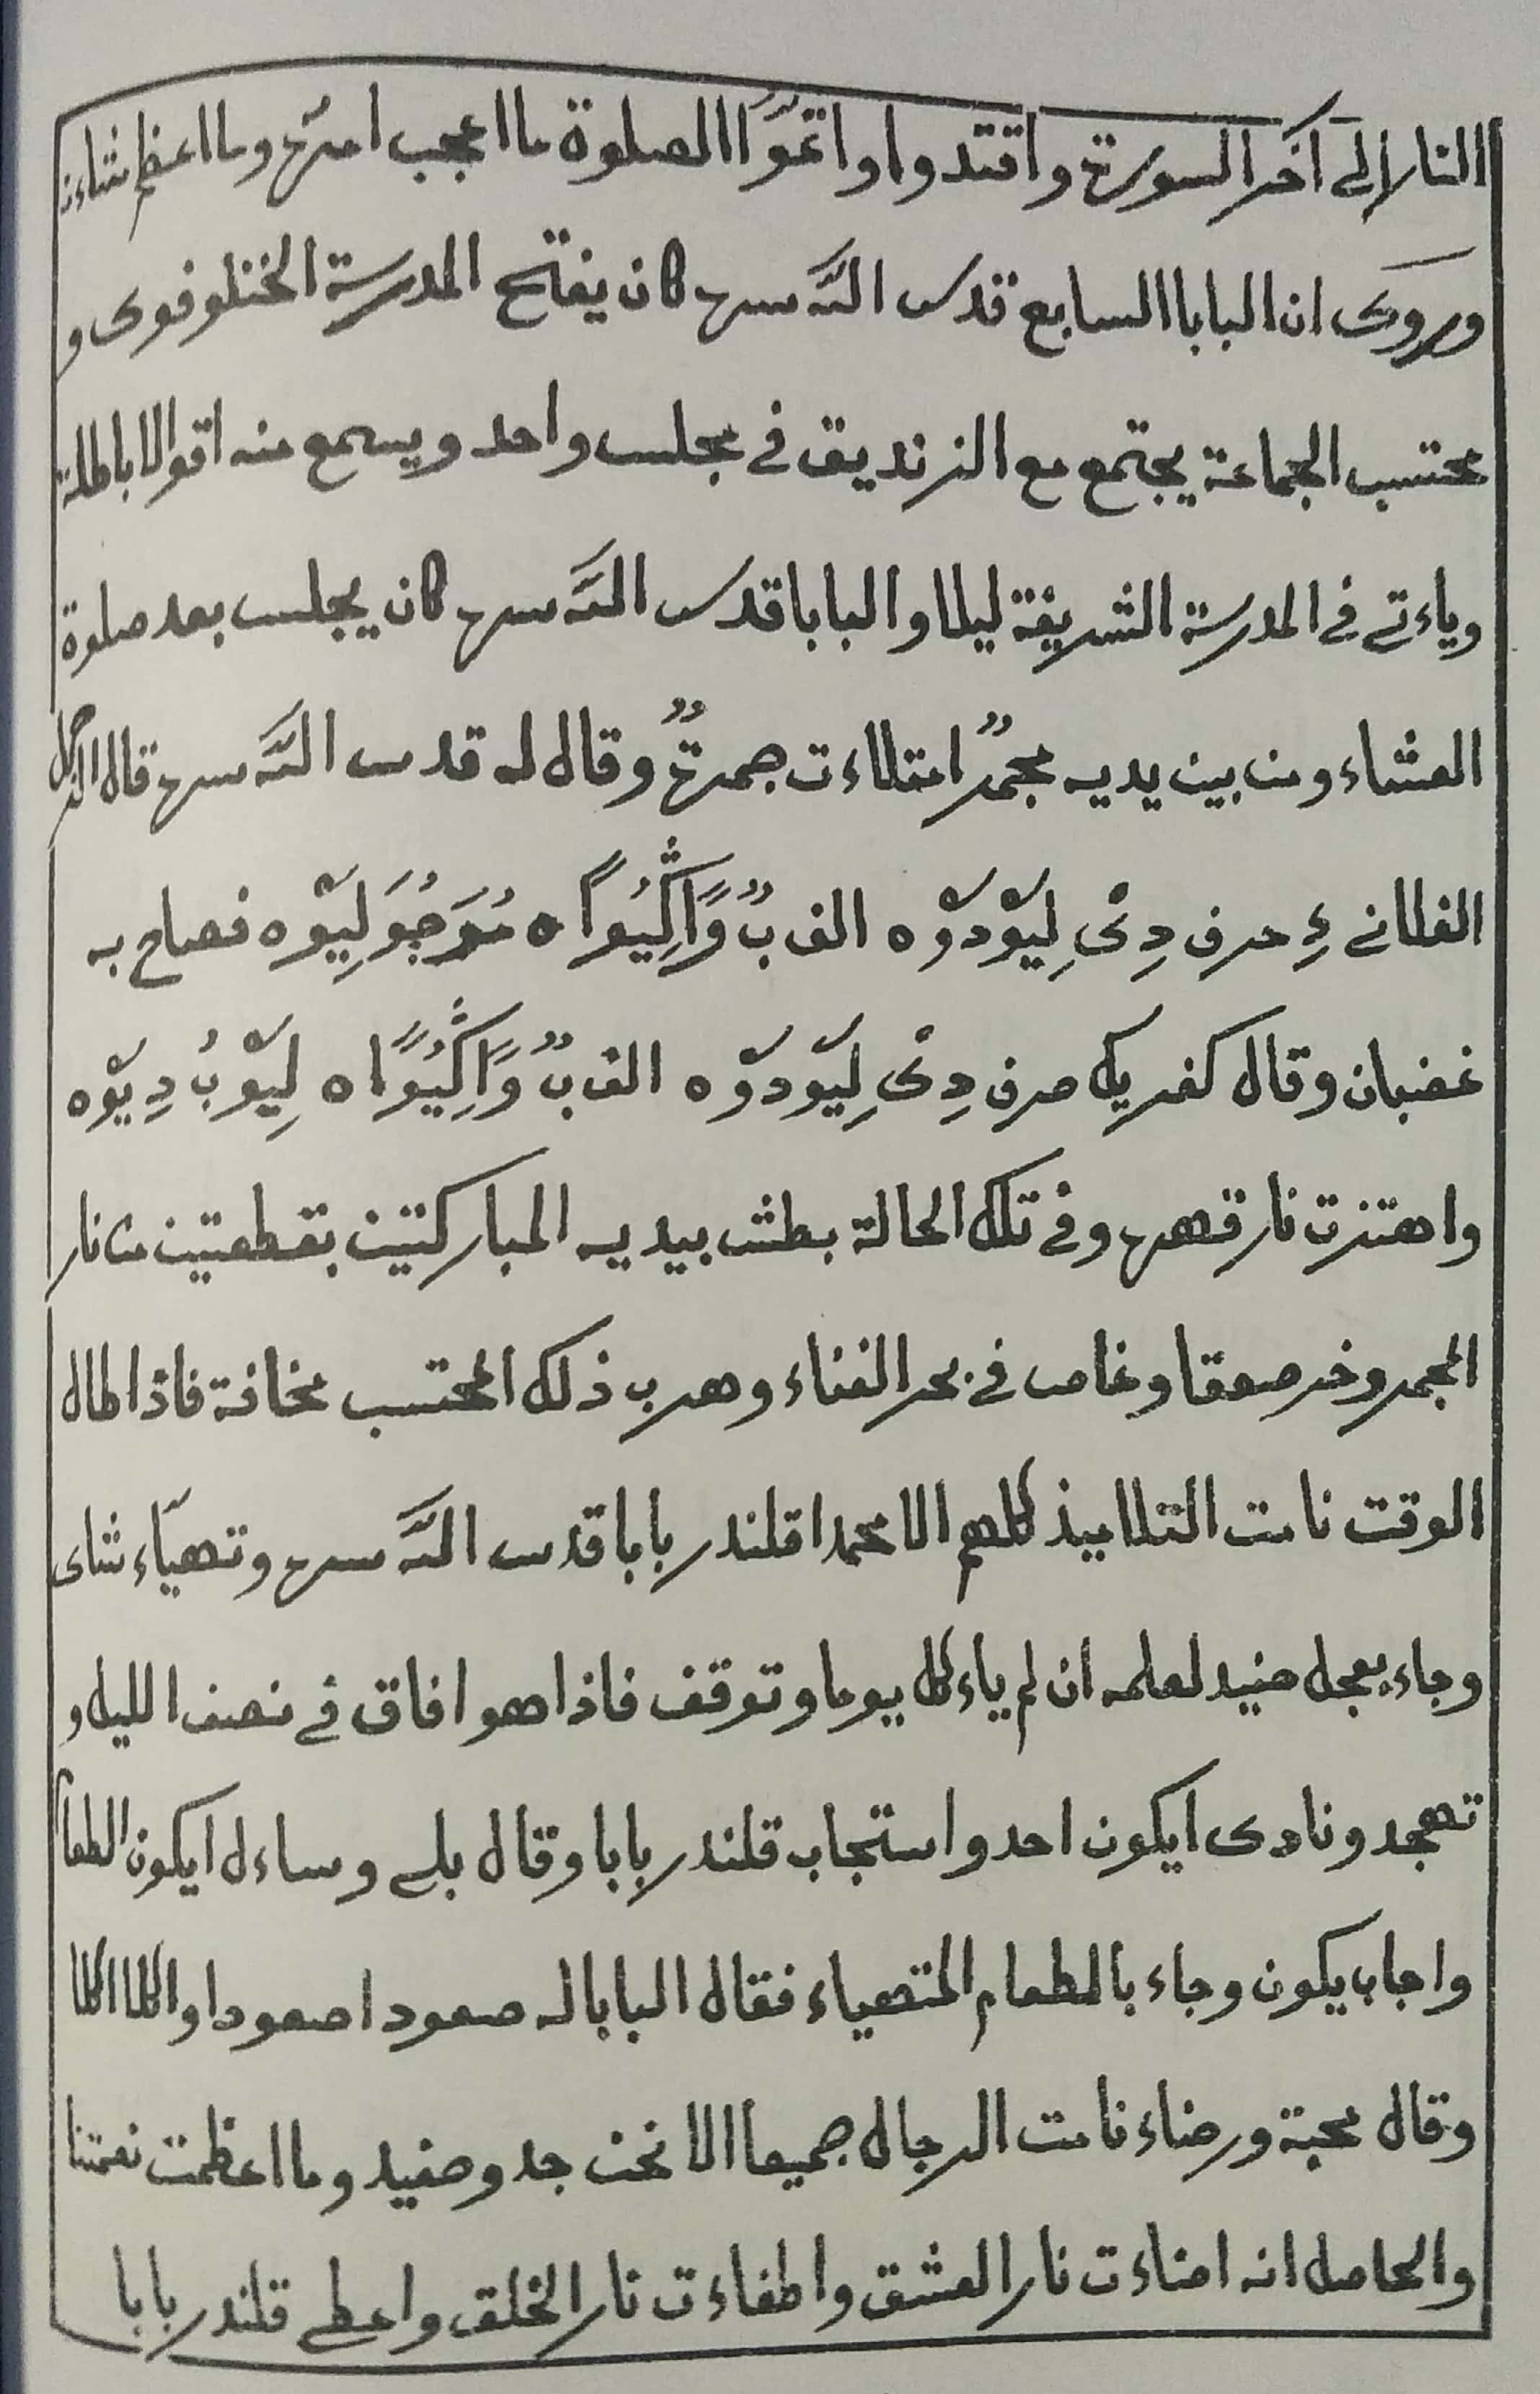 النار الى آخر السورة واقتدوا واتموا الصلوة ما اعجب امره وما اعظم شاءنه
وروى ان البابا السابع قدس الله سره كان يفتح المدرسة الخنلوفوى و
محتسب الجماعة يجتمع مع الزنديق في مجلس واحد ويسمع منه اقوالا باطلة
وياءتى في المدرسة الشريفة ليلا والبابا قدس الله سره كان يجلس بعد صلوة
العشاء ومن بين يديه مجمرٌ امتلاءت جمرةٌ وقال له قدس الله سره قال الرجل
الفلانى ءِ حرف دِىْ لِيَوْدَوْه الف بٌ وَاَكِيُواً ه مُوَجُوَلِيَوْه فصاح به
غضبان وقال كفريك صرف دِىْ لِيَوْدَوْه الف بٌ وَاَكِيُواً ه لِيَوْبُ دِيَوْه
واهتزت نار قهره وفي تلك الحالة بطش بيديه المباركتين بقطعتين من نار
المجمر وخر صعقا وغاص في بحر الفناء وهرب ذلك المحتسب مخافة فاذا طال
الوقت نامت التلاميذ كلهم الا محمدا قلندر بابا قدس الله سره وتهيّاء شاى
وجاء بعجل حنيد لعلمه ان لم ياءكل يوما وتوقف فاذا هو افاق في نصف الليل و
تهجد ونادى ايكون احد واستجاب قلندر بابا وقال بلى وساءل ايكون الطعام
واجاب يكون وجاء بالطعام المتهياء فقال البابا له صعودا صعودا واكلا اكلا
وقال محبة ورضاء نامت الرجال جميعا الا نحن جد وحفيد وما اعظمت نعمتنا
والحاصل انه اضاءت نار العشق واطفاءت نار الخلق واعطى قلندر بابا